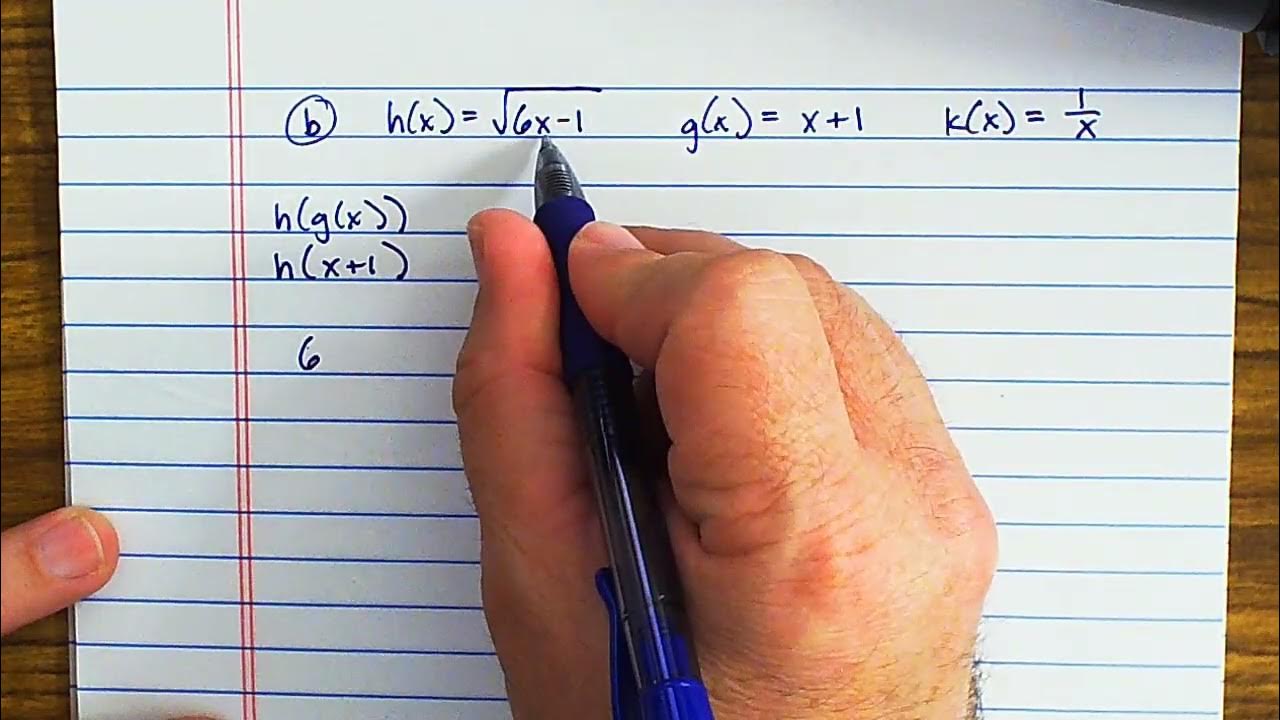 (b) h(x) = √(6x-1) g(x) = x+1 k(x) = 1/x
h(g(x))
h(x+1)
6